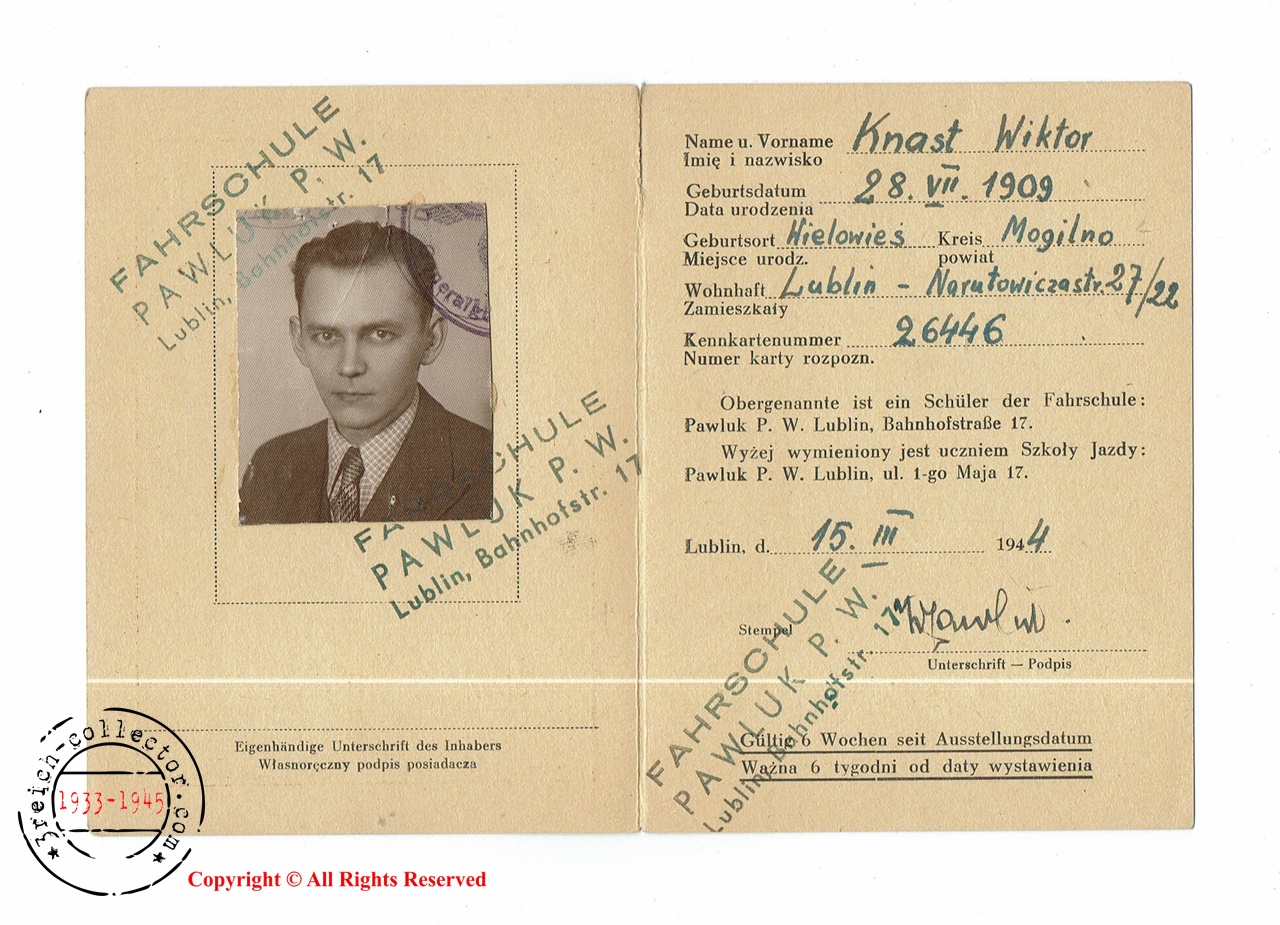 FAHRSCHULE
PAWLUK P. W.
Lublin, Bahnhofstr. 17
FAHRSCHULE
PAWLUK P. W.
Lublin, Bahnhofstr. 17
Eigenhändige Unterschrift des Inhabers
Własnoręczny podpis posiadacza
Name u. Vorname Knast Wiktor
Imię i nazwisko
Geburtsdatum 28. VII. 1909
Data urodzenia
Geburtsort Wielowieś Kreis Mogilno
Miejsce urodz. powiat
Wohnhaft Lublin - Narutowiczastr. 27/22
Zamieszkały
Kennkartenummer 26446
Numer karty rozpozn.
Obergenannte ist ein Schüler der Fahrschule:
Pawluk P. W. Lublin, Bahnhofstraße 17.
Wyżej wymieniony jest uczniem Szkoły Jazdy:
Pawluk P. W. Lublin, ul. 1-go Maja 17.
Lublin, d. 15. III 1944
Stempel
Unterschrift — Podpis
FAHRSCHULE
PAWLUK P. W.
Lublin, Bahnhofstr. 17
Gültig 6 Wochen seit Ausstellungsdatum
Ważna 6 tygodni od daty wystawienia
3reich-collector.com
1933-1945
Copyright © All Rights Reserved